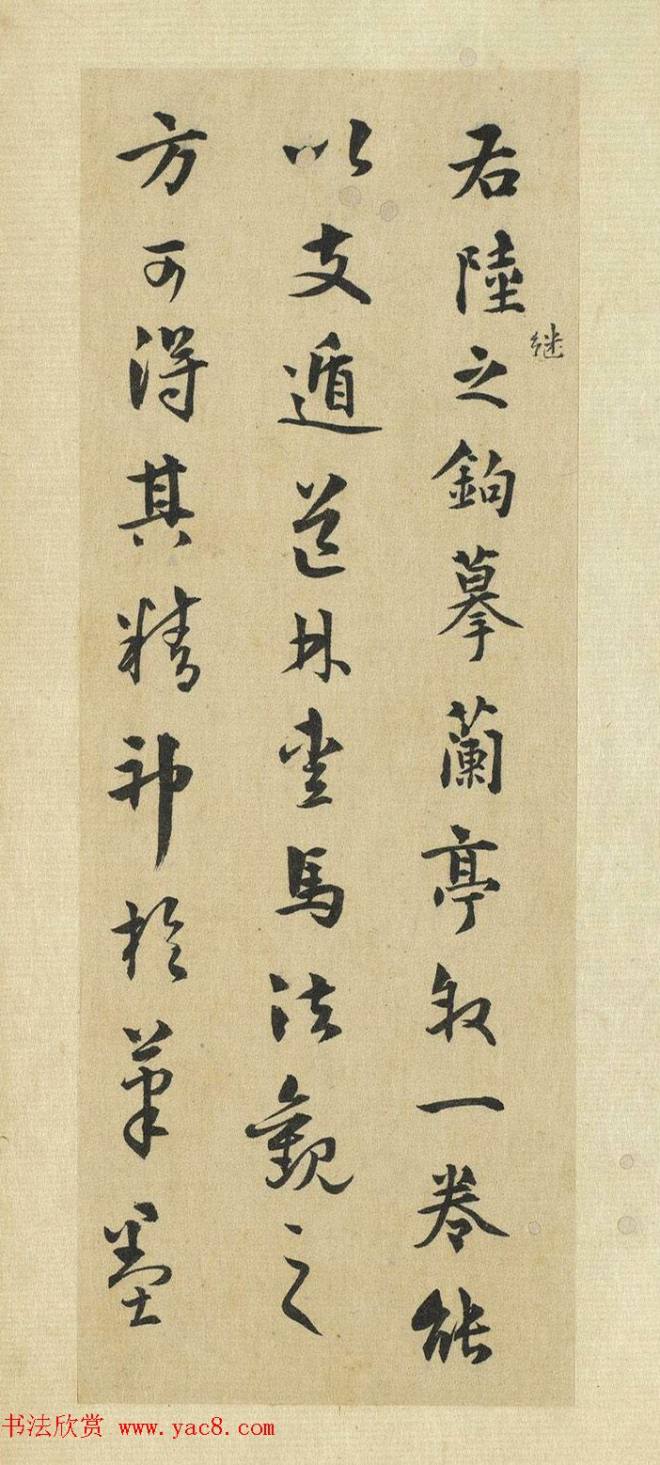 右陸之鉤摹蘭亭叙一卷能
继
以支遁道林畜馬法觀之
方可得其精神於筆墨
书法欣赏 www.yac8.com